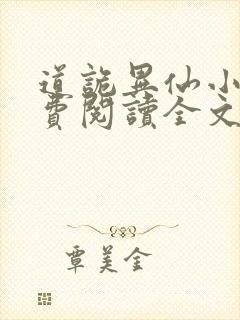 道詭異仙小
費閱讀全文
覃美金